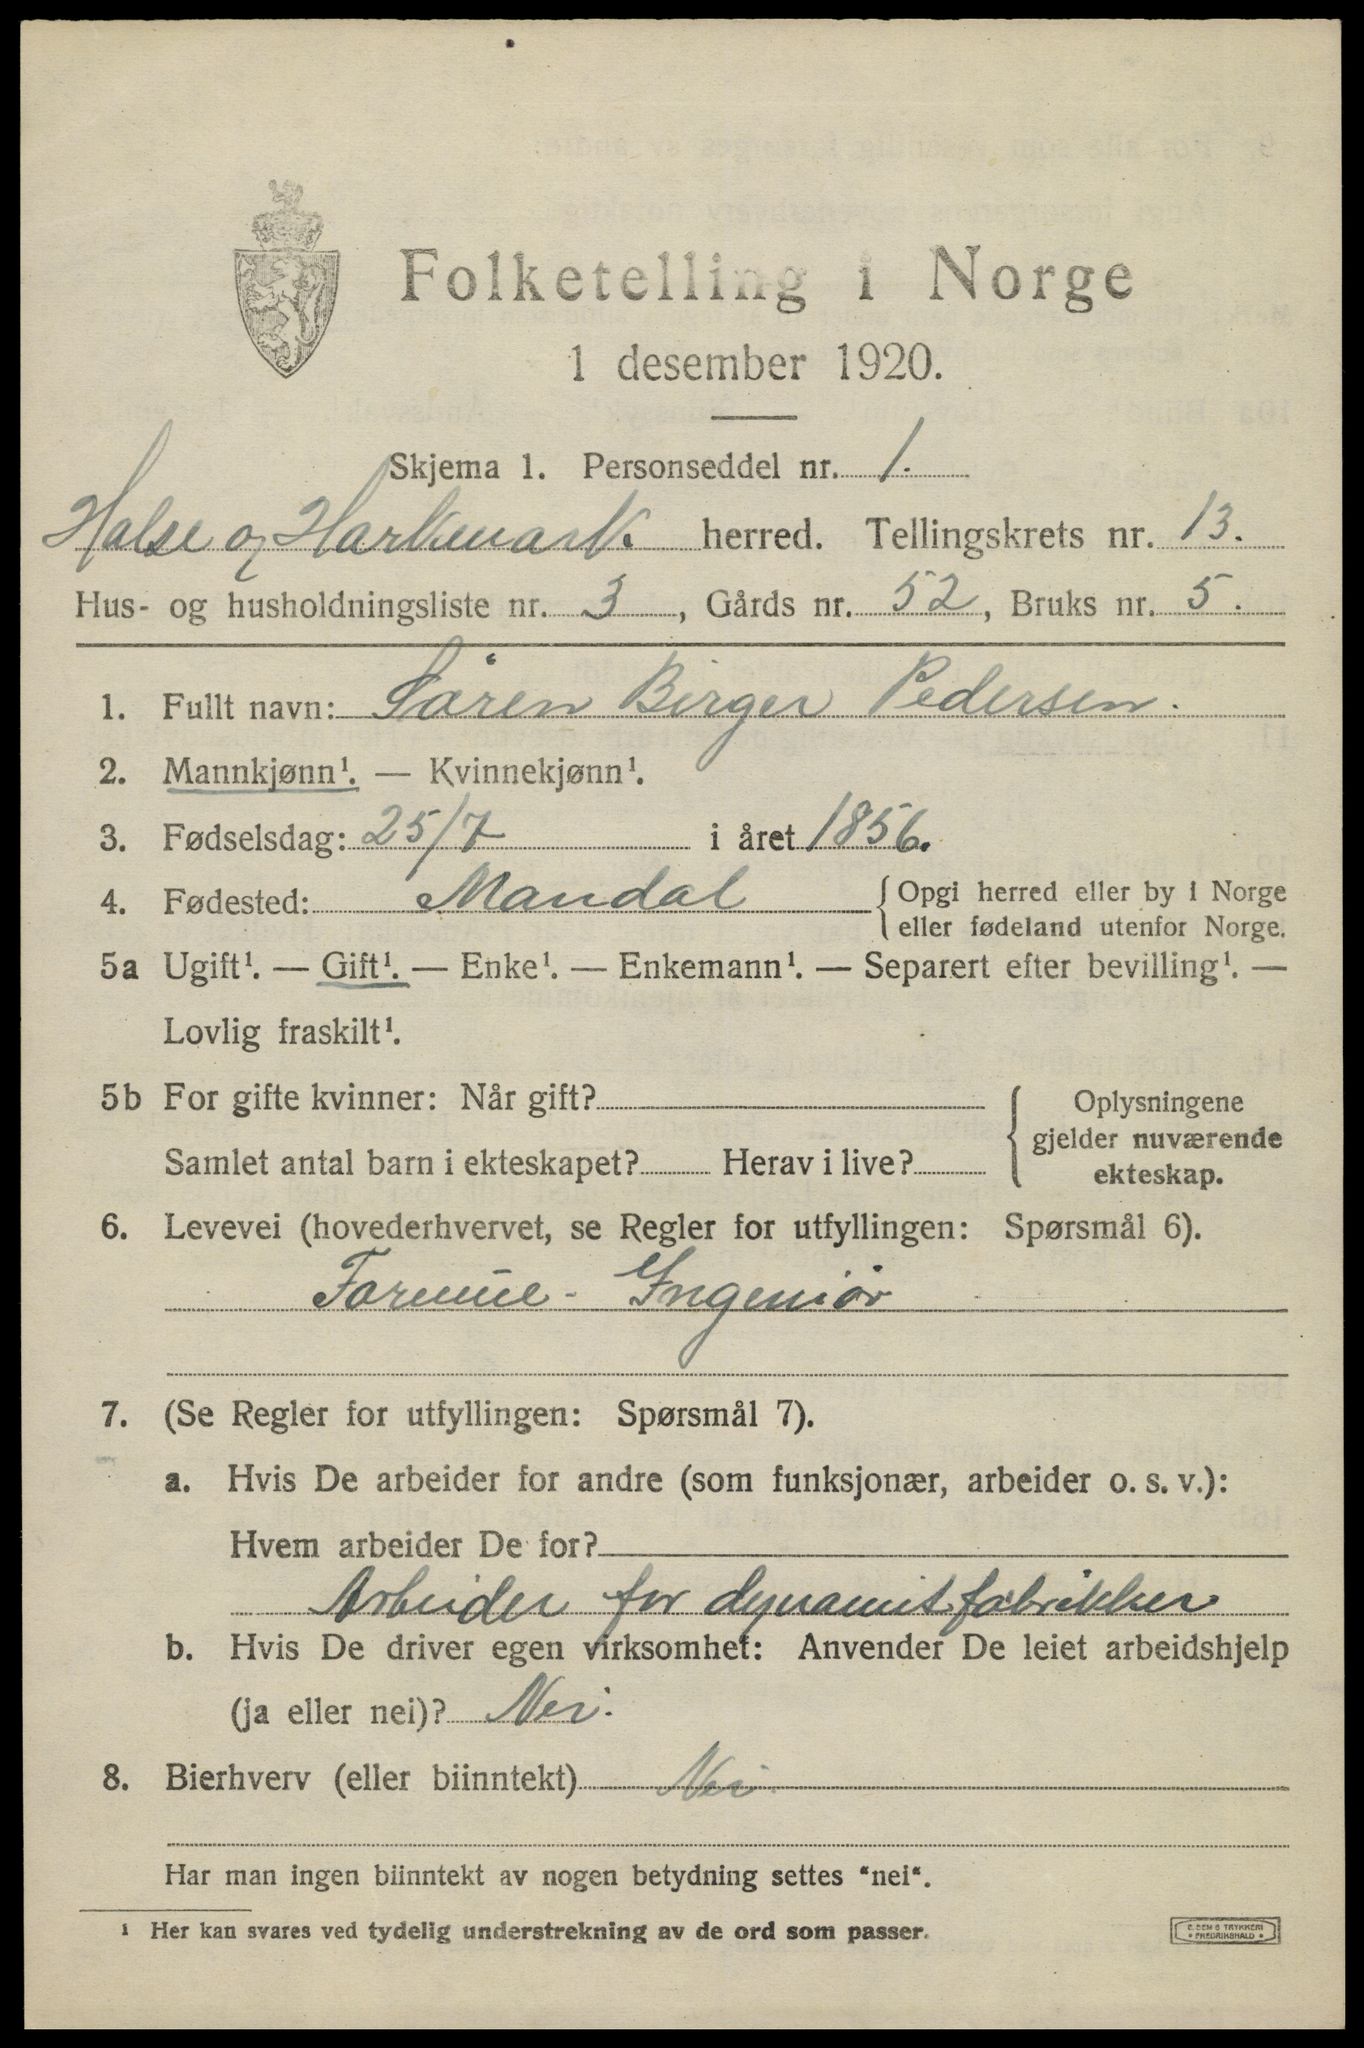 Folketelling i Norge
1 desember 1920.
Skjema 1. Personseddel nr. 1.
Halse og Harkmark. herred. Tellingskrets nr. 13.
Hus- og husholdningsliste nr. 3, Gårds nr. 52, Bruks nr. 5.
1. Fullt navn: Sören Birger Pedersen.
2. Mannkjønn¹. — Kvinnekjønn¹.
3. Fødselsdag: 25/7 i året 1856.
4. Fødested: Mandal { Opgi herred eller by i Norge
eller fødeland utenfor Norge.
5a Ugift¹. — Gift¹. — Enke¹. — Enkemann¹. — Separert efter bevilling¹. —
Lovlig fraskilt¹.
5b For gifte kvinner: Når gift?
Samlet antal barn i ekteskapet? Herav i live?
Oplysningene
gjelder nuværende
ekteskap.
6. Levevei (hovederhvervet, se Regler for utfyllingen: Spørsmål 6).
Formue - Ingeniör
7. (Se Regler for utfyllingen: Spørsmål 7).
a. Hvis De arbeider for andre (som funksjonær, arbeider o. s. v.):
Hvem arbeider De for?
Arbeider for dynamitfabrikker
b. Hvis De driver egen virksomhet: Anvender De leiet arbeidshjelp
(ja eller nei)? Nei.
8. Bierhverv (eller biinntekt) Nei.
Har man ingen biinntekt av nogen betydning settes "nei".
¹ Her kan svares ved tydelig understrekning av de ord som passer.
FREDRIKSHALD